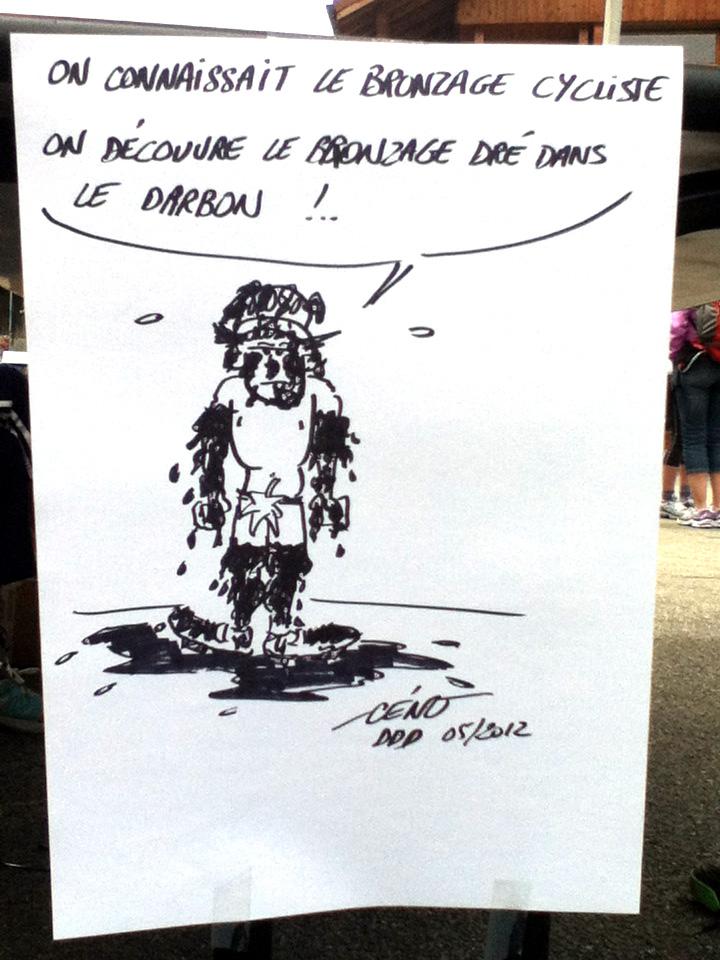 ON CONNAISSAIT LE BRONZAGE CYCLISTE
ON DÉCOUVRE LE BRONZAGE DRÉ DANS
LE DARBON !...
CÉNO
DDD 05/2012